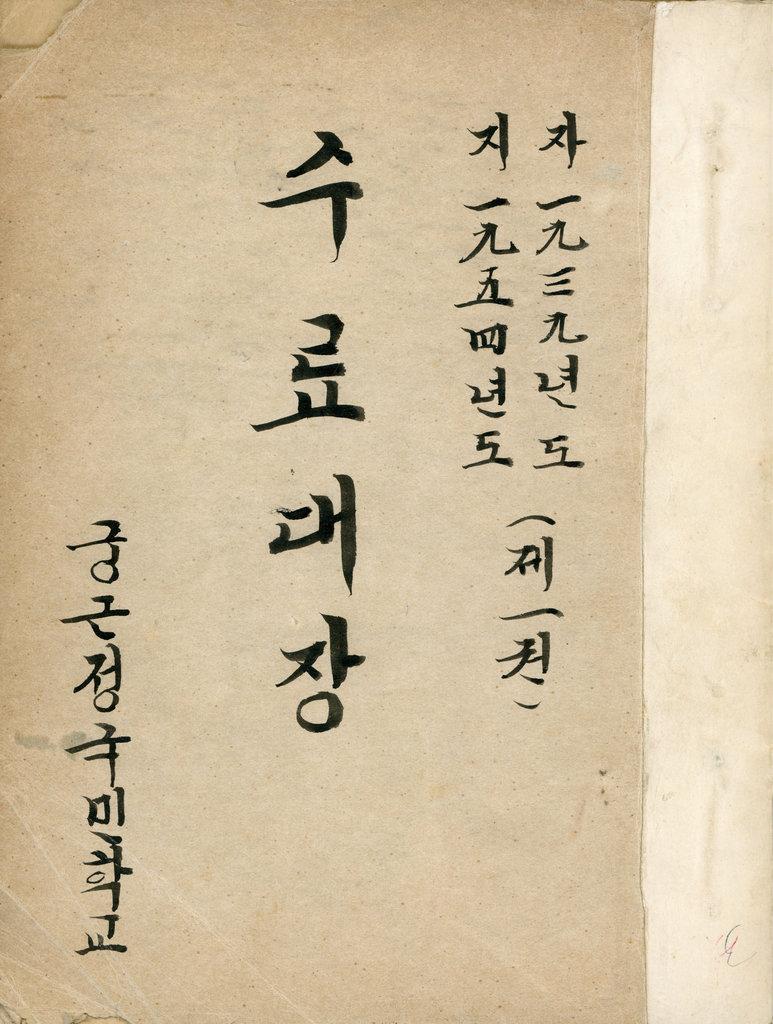 자 一九三九년도
지 一九五四년도
(제一권)
수료대장
궁근정국민학교